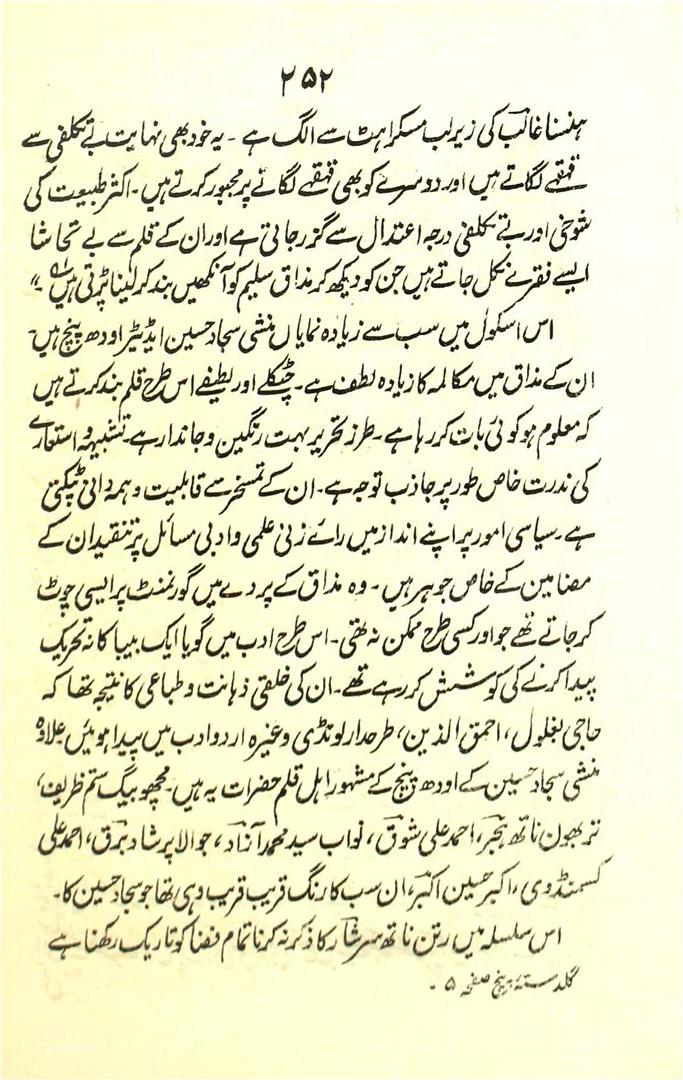 ۲۵۲
ہنسنا غالبؔ کی زیرلب مسکراہٹ سے الگ ہے ۔ یہ خود بھی نہایت بے تکلفی سے
قہقہے لگاتے ہیں اور دوسرے کو بھی قہقہے لگانے پر مجبور کرتے ہیں۔ اکثر طبیعت کی
شوخی اور بے تکلفی درجہ اعتدال سے گزر جاتی ہے اور ان کے قلم سے بے تحاشا
ایسے فقرے نکل جاتے ہیں جن کو دیکھ کر مذاق سلیم کو آنکھیں بند کر لینا پڑتی ہیں ۔"
اس اسکول میں سب سے زیادہ نمایاں منشی سجاد حسین ایڈیٹر اودھ پنچ ہیں۔
ان کے مذاق میں مکالمہ کا زیادہ لطف ہے۔ چٹکلے اور لطیفے اس طرح قلم بند کرتے ہیں
کہ معلوم ہو کوئی بات کر رہا ہے۔ طرز تحریر بہت رنگین و جاندار ہے۔ تشبیہ و استعارے
کی ندرت خاص طور پر جاذب توجہ ہے۔ ان کے تمسخر سے قابلیت و ہمہ دانی ٹپکتی
ہے۔ سیاسی امور پر اپنے انداز میں رائے زنی علمی و ادبی مسائل پر تنقید ان کے
مضامین کے خاص جوہر ہیں ۔ وہ مذاق کے پردے میں گورنمنٹ پر ایسی چوٹ
کر جاتے تھے جو اور کسی طرح ممکن نہ تھی۔ اس طرح ادب میں گویا ایک بیباکانہ تحریک
پیدا کرنے کی کوشش کر رہے تھے۔ ان کی خلقی ذہانت و طباعی کا نتیجہ تھا کہ
حاجی بغلول، احمق الذین، طرحدار لونڈی وغیرہ اردو ادب میں پیدا ہوئیں علاوہ
منشی سجاد حسین کے اودھ پنچ کے مشہور اہل قلم حضرات یہ ہیں۔ مچھو بیگ ستم ظریف،
تربھون ناتھ ہجرؔ، احمد علی شوقؔ، نواب سید محمد آزادؔ، جوالا پرشاد برقؔ، احمد علی
کسمنڈوی، اکبر حسین اکبرؔ، ان سب کا رنگ قریب قریب وہی تھا جو سجاد حسین کا۔
اس سلسلہ میں رتن ناتھ سرشارؔ کا ذکر نہ کرنا تمام فضا کو تاریک رکھنا ہے
گلدستہ پنچ صفحہ ۵ ۔